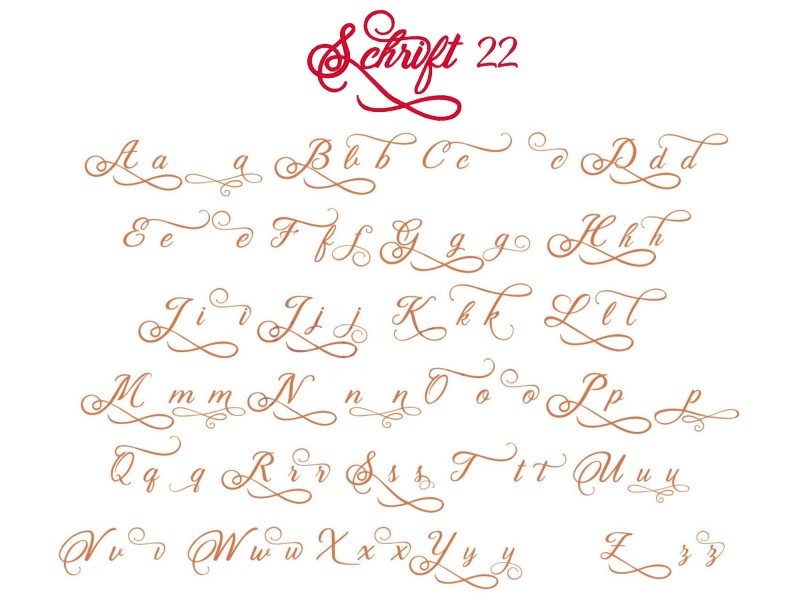 Schrift 22
A a a B b b C c c D d d
E e e F f f G g g H h h
I i i J j j K k k L l l
M m m N n n O o o P p p
Q q q R r r S s s T t t U u u
V v v W w w X x x Y y y Z z z